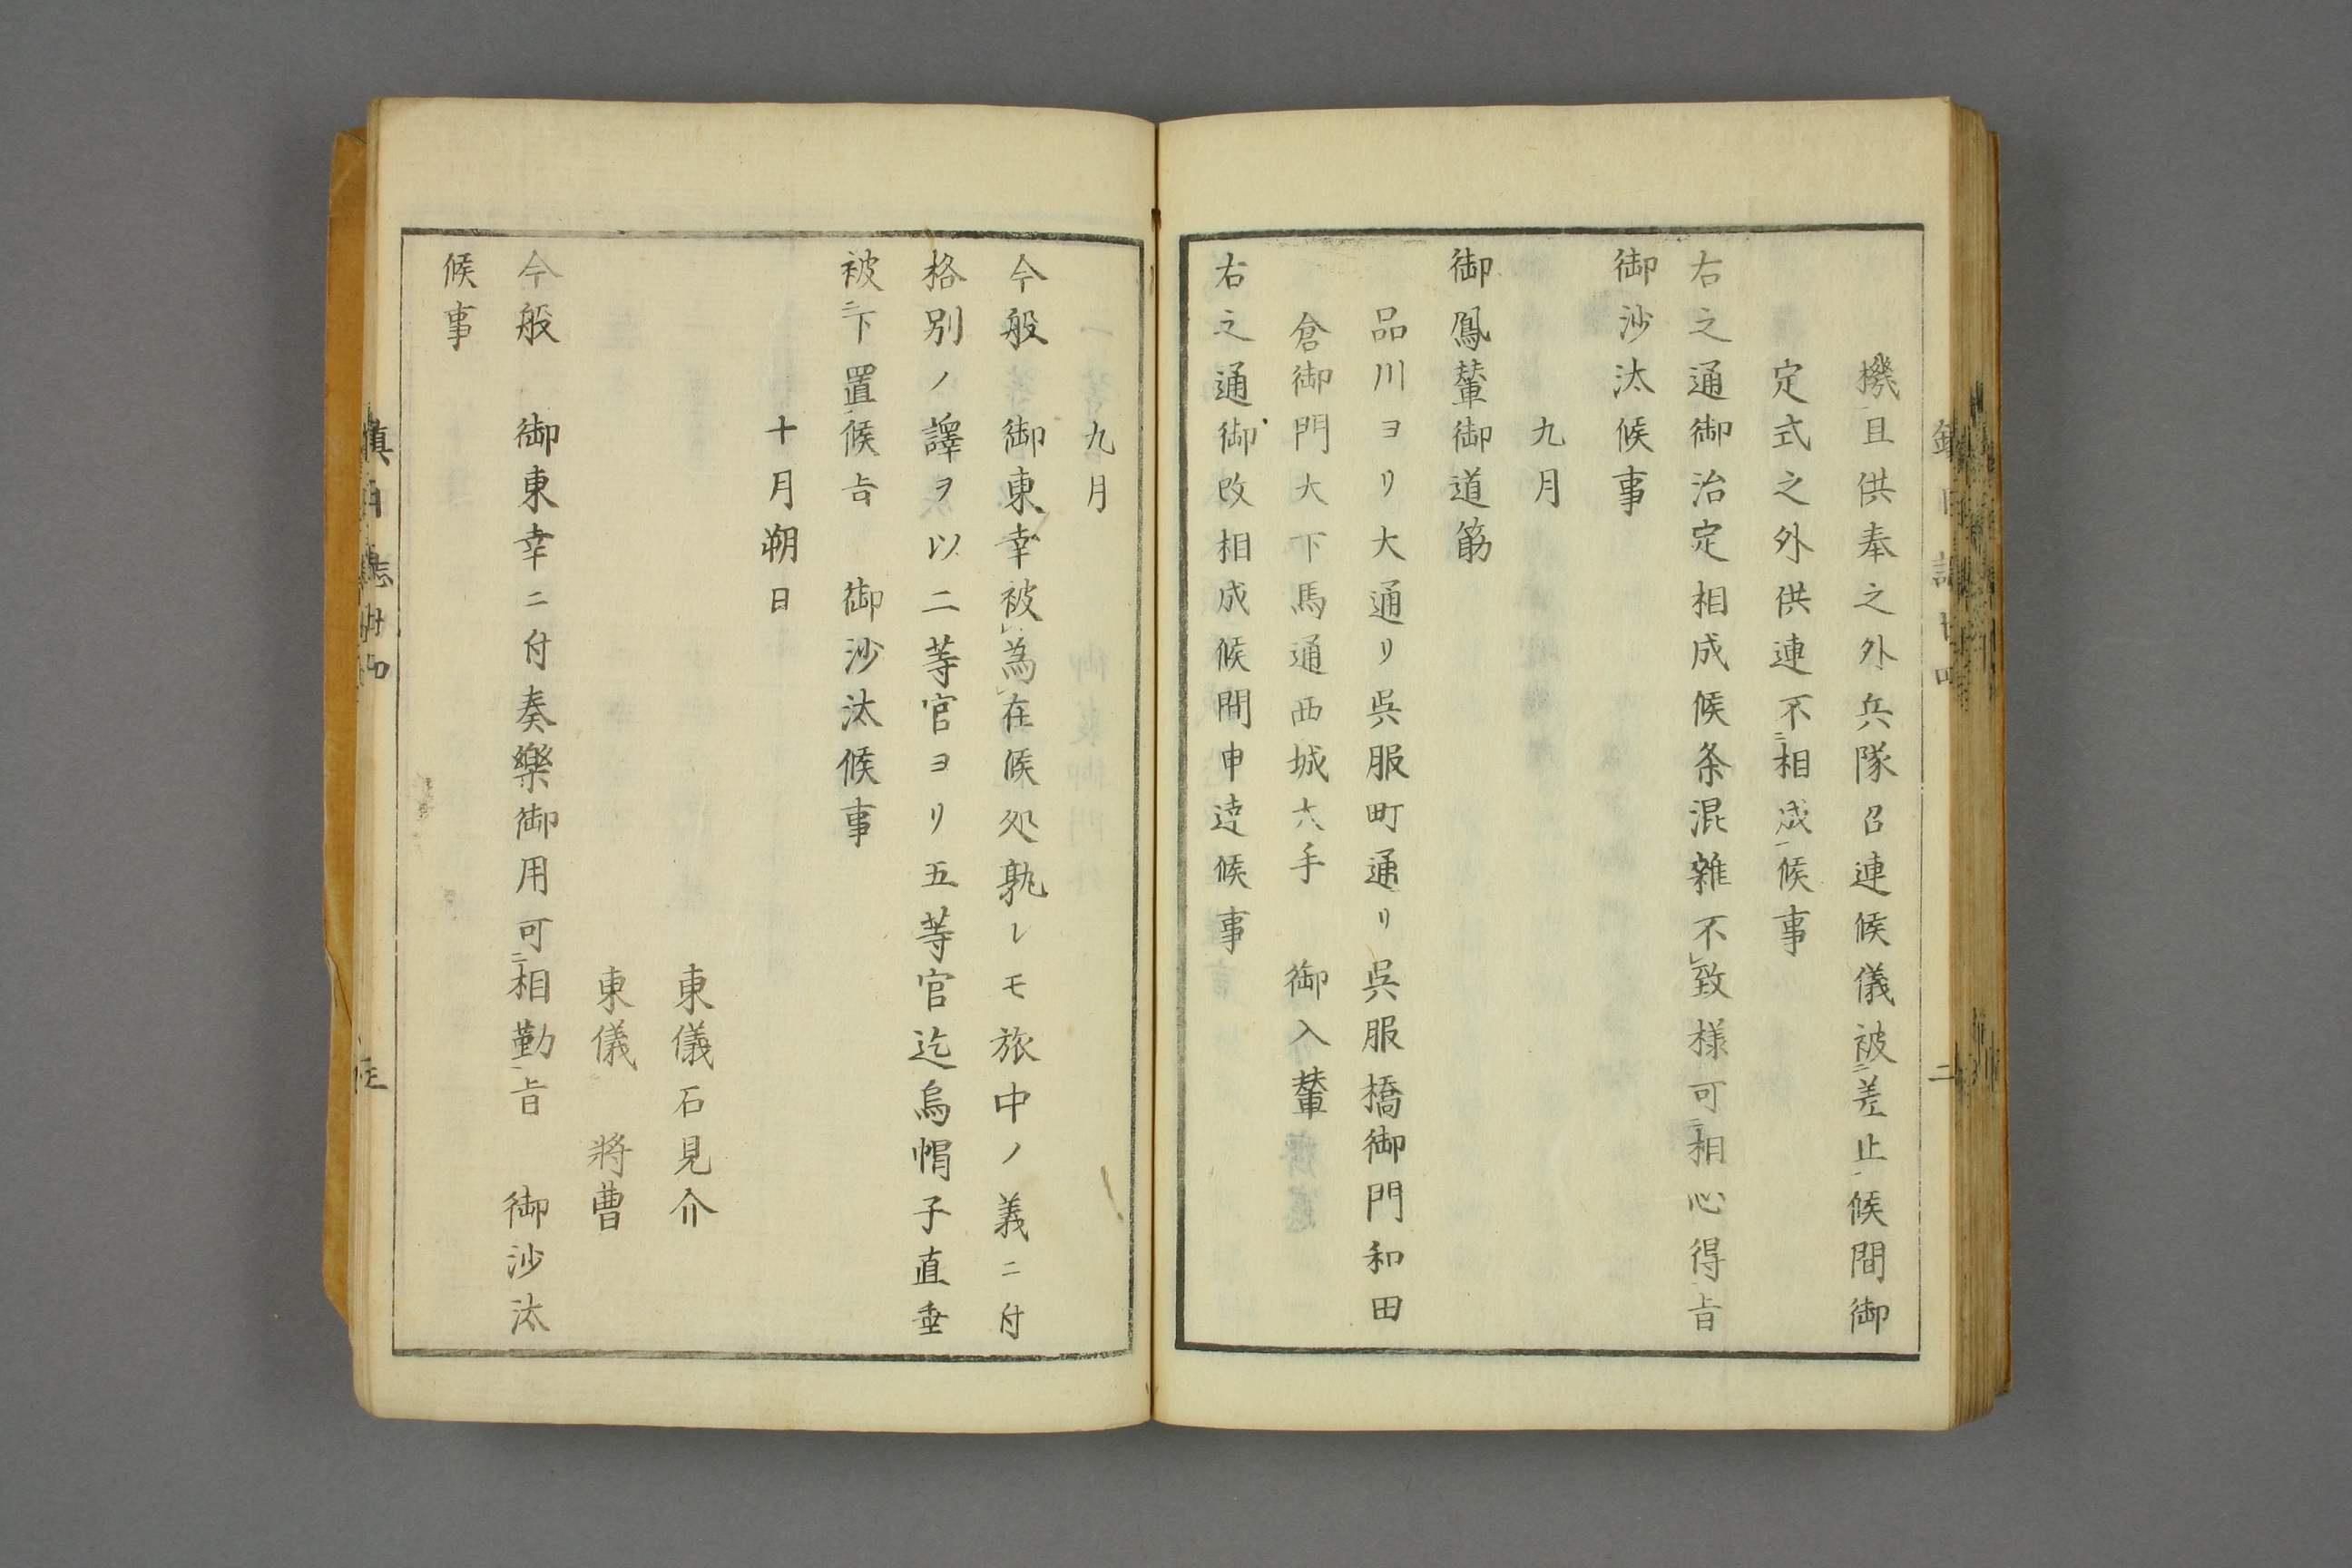 機且供奉之外兵隊召連候儀被㆓差止㆒候間御
定式之外供連不㆓相成㆒候事
右之通御治定相成候条混雑不㆑致様可㆓相心得㆒旨
御沙汰候事
九月
御鳳輦御道筋
品川ヨリ大通リ呉服町通リ呉服橋御門和田
倉御門大下馬通西城大手　御入輦
右之通御改相成候間申達候事
九月
今般　御東幸被㆑為㆑在候処孰レモ旅中ノ義ニ付
格別ノ譯ヲ以二等官ヨリ五等官迄烏帽子直垂
被㆓下置㆒候旨　御沙汰候事
十月朔日
東儀石見介
東儀　将曹
今般　御東幸ニ付奏樂御用可㆓相勤㆒旨　御沙汰
候事
鎮日誌廿四
三